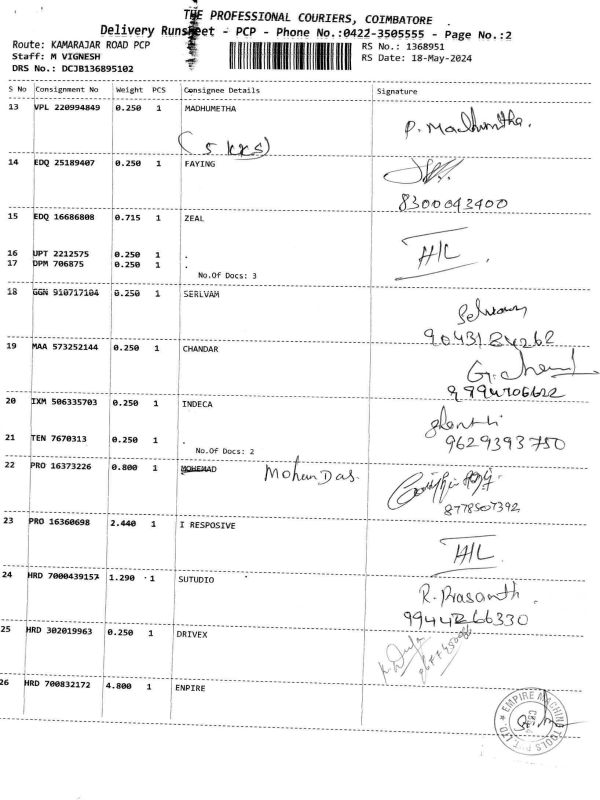 THE PROFESSIONAL COURIERS, COIMBATORE
Delivery Runsheet - PCP - Phone No.:0422-3505555 - Page No.:2
Route: KAMARAJAR ROAD PCP
RS No.: 1368951
Staff: M VIGNESH
RS Date: 18-May-2024
DRS No.: DCJB136895102
S No Consignment No Weight PCS Consignee Details Signature
13 VPL 220994849 0.250 1 MADHUMETHA
P. Madhumitha.
(5 KKS)
14 EDQ 25189407 0.250 1 FAYING
8300043400
15 EDQ 16686808 0.715 1 ZEAL
16 UPT 2212575 0.250 1 .
17 DPM 706875 0.250 1 .
No.Of Docs: 3
18 GGN 910717104 0.250 1 SERLVAM
9043184262
19 MAA 573252144 0.250 1 CHANDAR
9994706622
20 IXM 506335703 0.250 1 INDECA
9629393750
21 TEN 7670313 0.250 1 .
No.Of Docs: 2
22 PRO 16373226 0.800 1 MOHEMAD Mohan Das.
8778507392
23 PRO 16360698 2.440 1 I RESPOSIVE
24 HRD 7000439157 1.290 1 SUTUDIO
R. Prasanth.
9944266330
25 HRD 302019963 0.250 1 DRIVEX
26 HRD 700832172 4.800 1 ENPIRE
EMPIRE MACHINE TOOLS